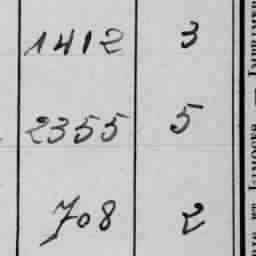 1412 3
2355 5
708 2